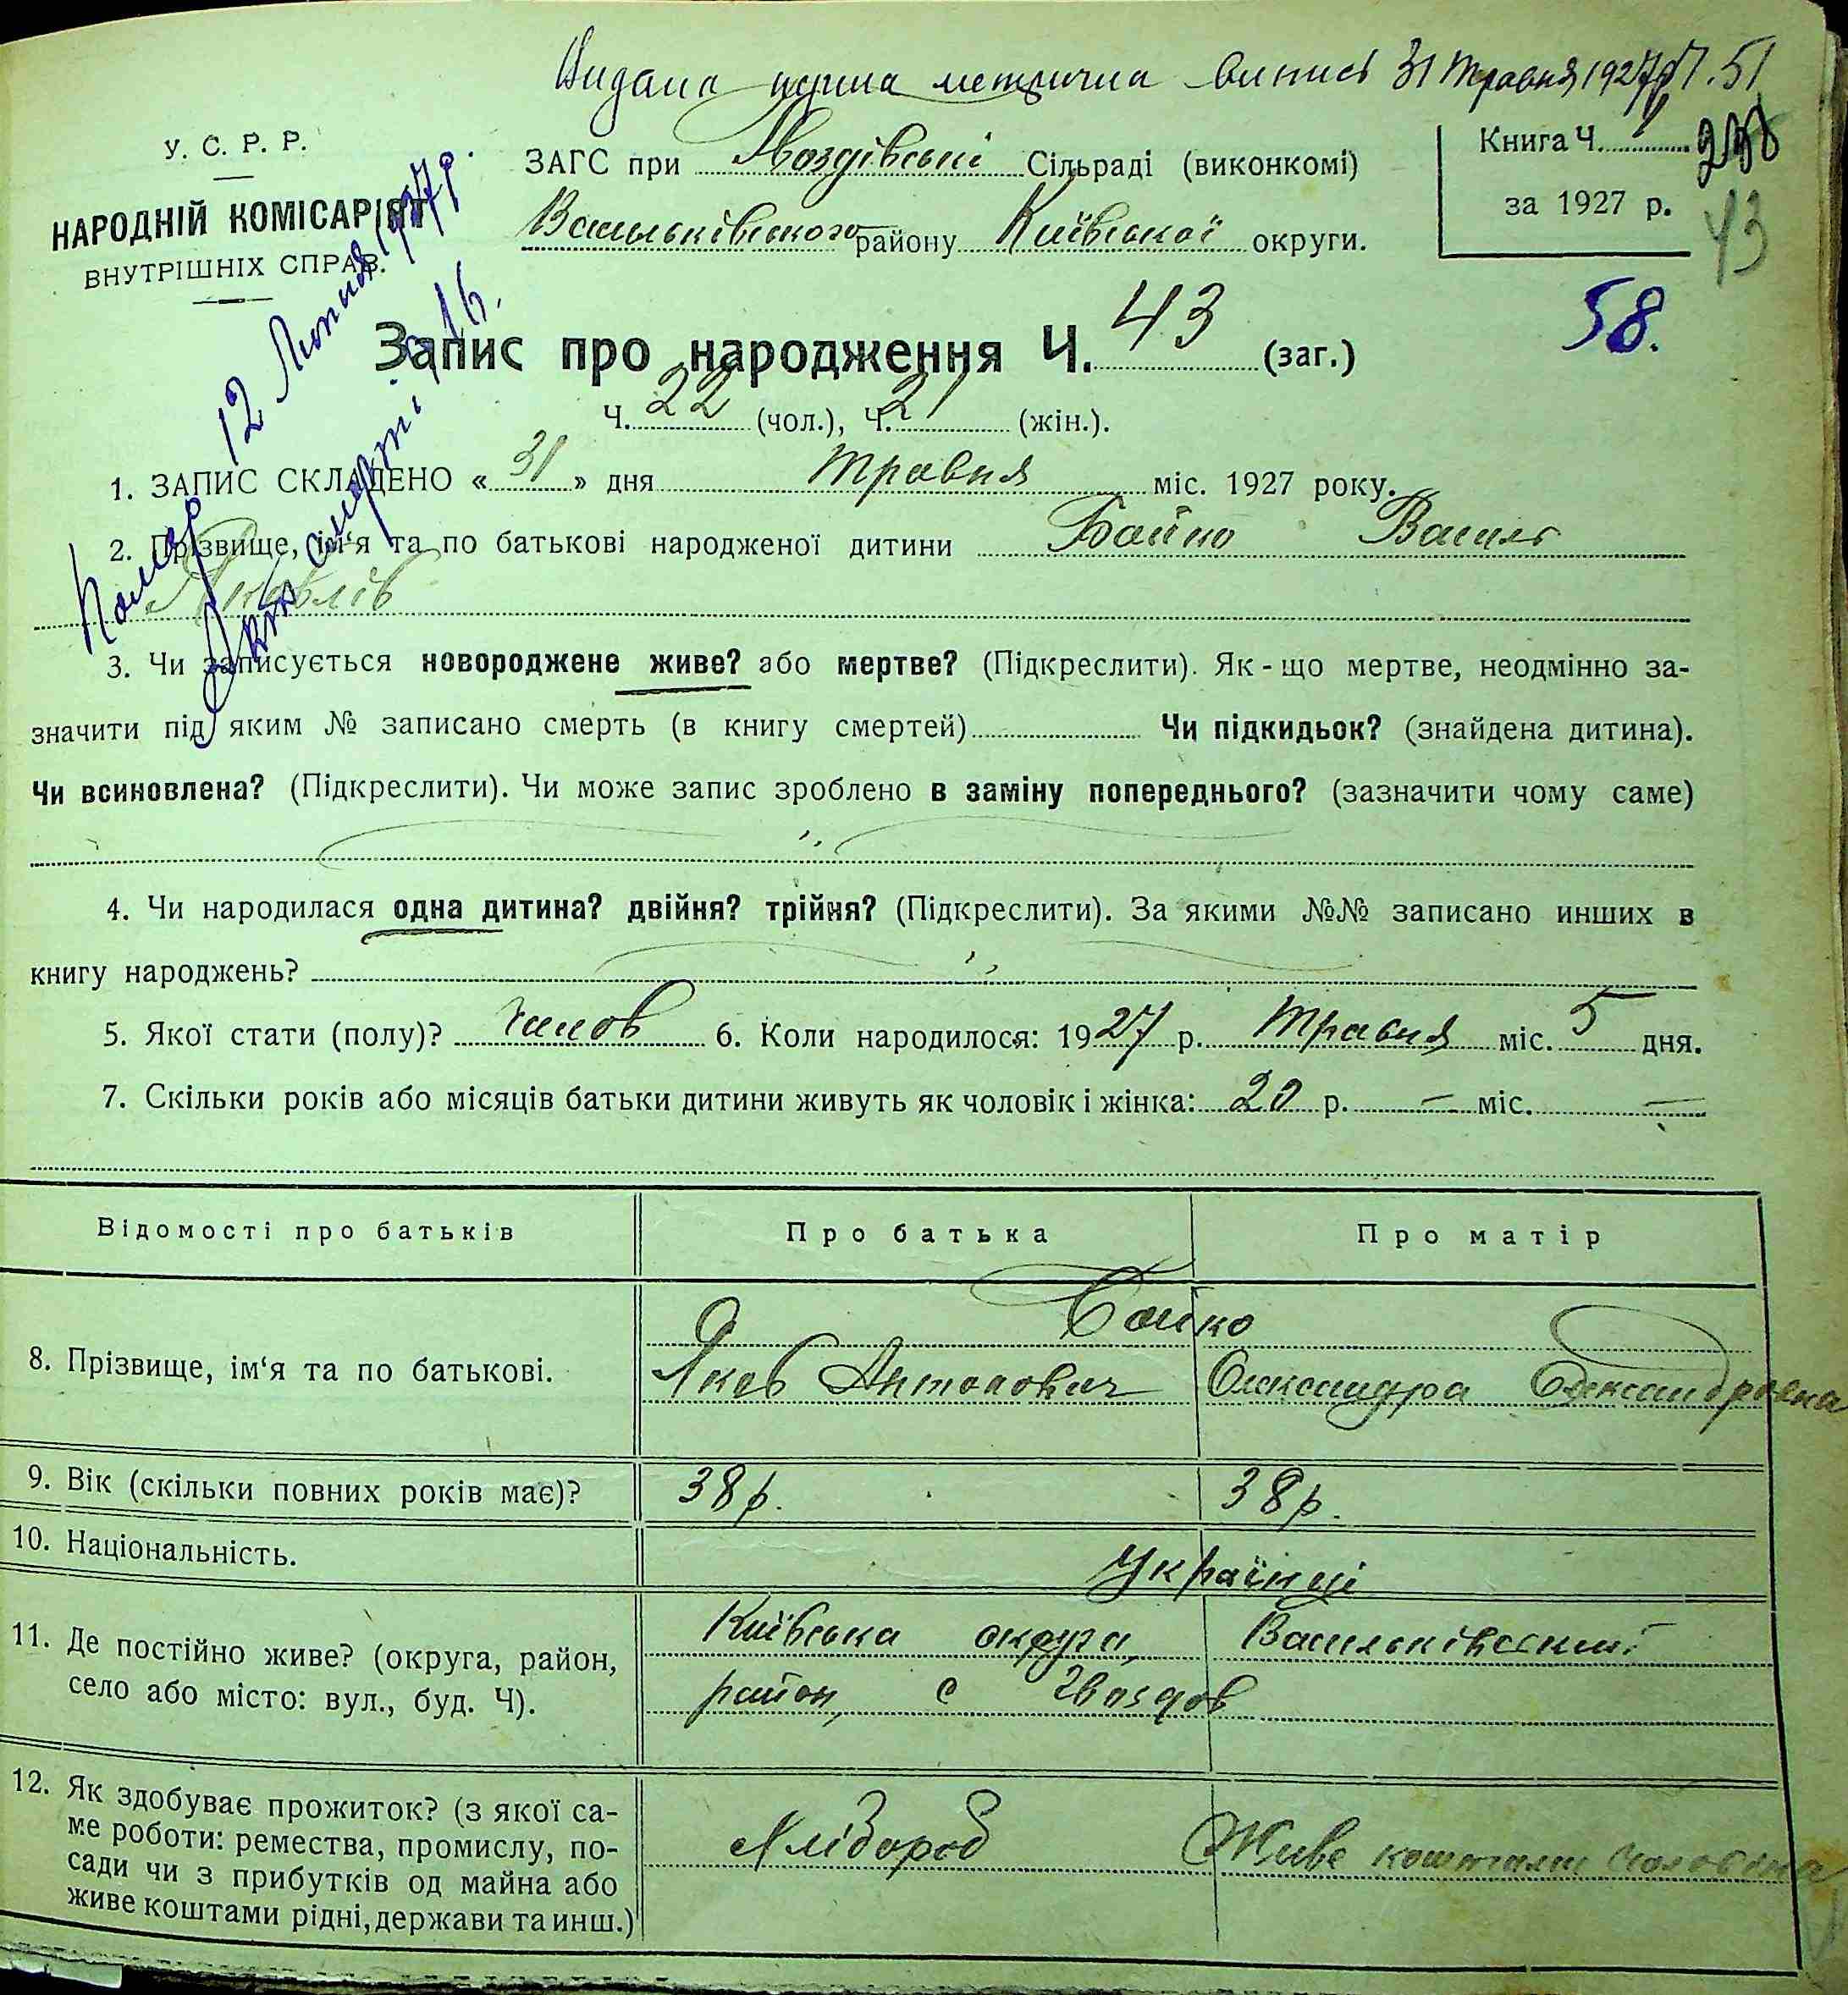 Видана перша метрична випись 31 травня 1927 р. Ч. 51
У. С. Р. Р.
НАРОДНІЙ КОМІСАРІЯТ
ВНУТРІШНІХ СПРАВ.
ЗАГС при Гвоздівські Сільраді (виконкомі)
Васильківського району Київської округи.
Книга Ч.
за 1927 р.
43
58.
Помер 12 Липня 1927 р.
Акт смерті 16.
Запис про народження Ч. 43 (заг.)
Ч. 22 (чол.), Ч. 21 (жін.).
1. ЗАПИС СКЛАДЕНО «31» дня травня міс. 1927 року.
2. Прізвище, ім‘я та по батькові народженої дитини Бойко Василь
Яковлів
3. Чи записується новороджене живе? або мертве? (Підкреслити). Як-що мертве, неодмінно за-
значити під яким № записано смерть (в книгу смертей) Чи підкидьок? (знайдена дитина).
Чи всиновлена? (Підкреслити). Чи може запис зроблено в заміну попереднього? (зазначити чому саме)
4. Чи народилася одна дитина? двійня? трійня? (Підкреслити). За якими №№ записано инших в
книгу народжень?
5. Якої стати (полу)? чолов 6. Коли народилося: 1927 р. травня міс. 5 дня.
7. Скільки років або місяців батьки дитини живуть як чоловік і жінка: 20 р. — міс. —
Відомості про батьків Про батька Про матір
Бойко
8. Прізвище, ім‘я та по батькові. Яков Антонович Олександра Олександровна
9. Вік (скільки повних років має)? 38 р. 38 р.
10. Національність. Українці
11. Де постійно живе? (округа, район, Київська округа, Васильківський
село або місто: вул., буд. Ч). район, с Гвоздов
12. Як здобуває прожиток? (з якої са-
ме роботи: ремества, промислу, по- Хлібороб Живе коштами чоловіка
сади чи з прибутків од майна або
живе коштами рідні, держави та инш.)